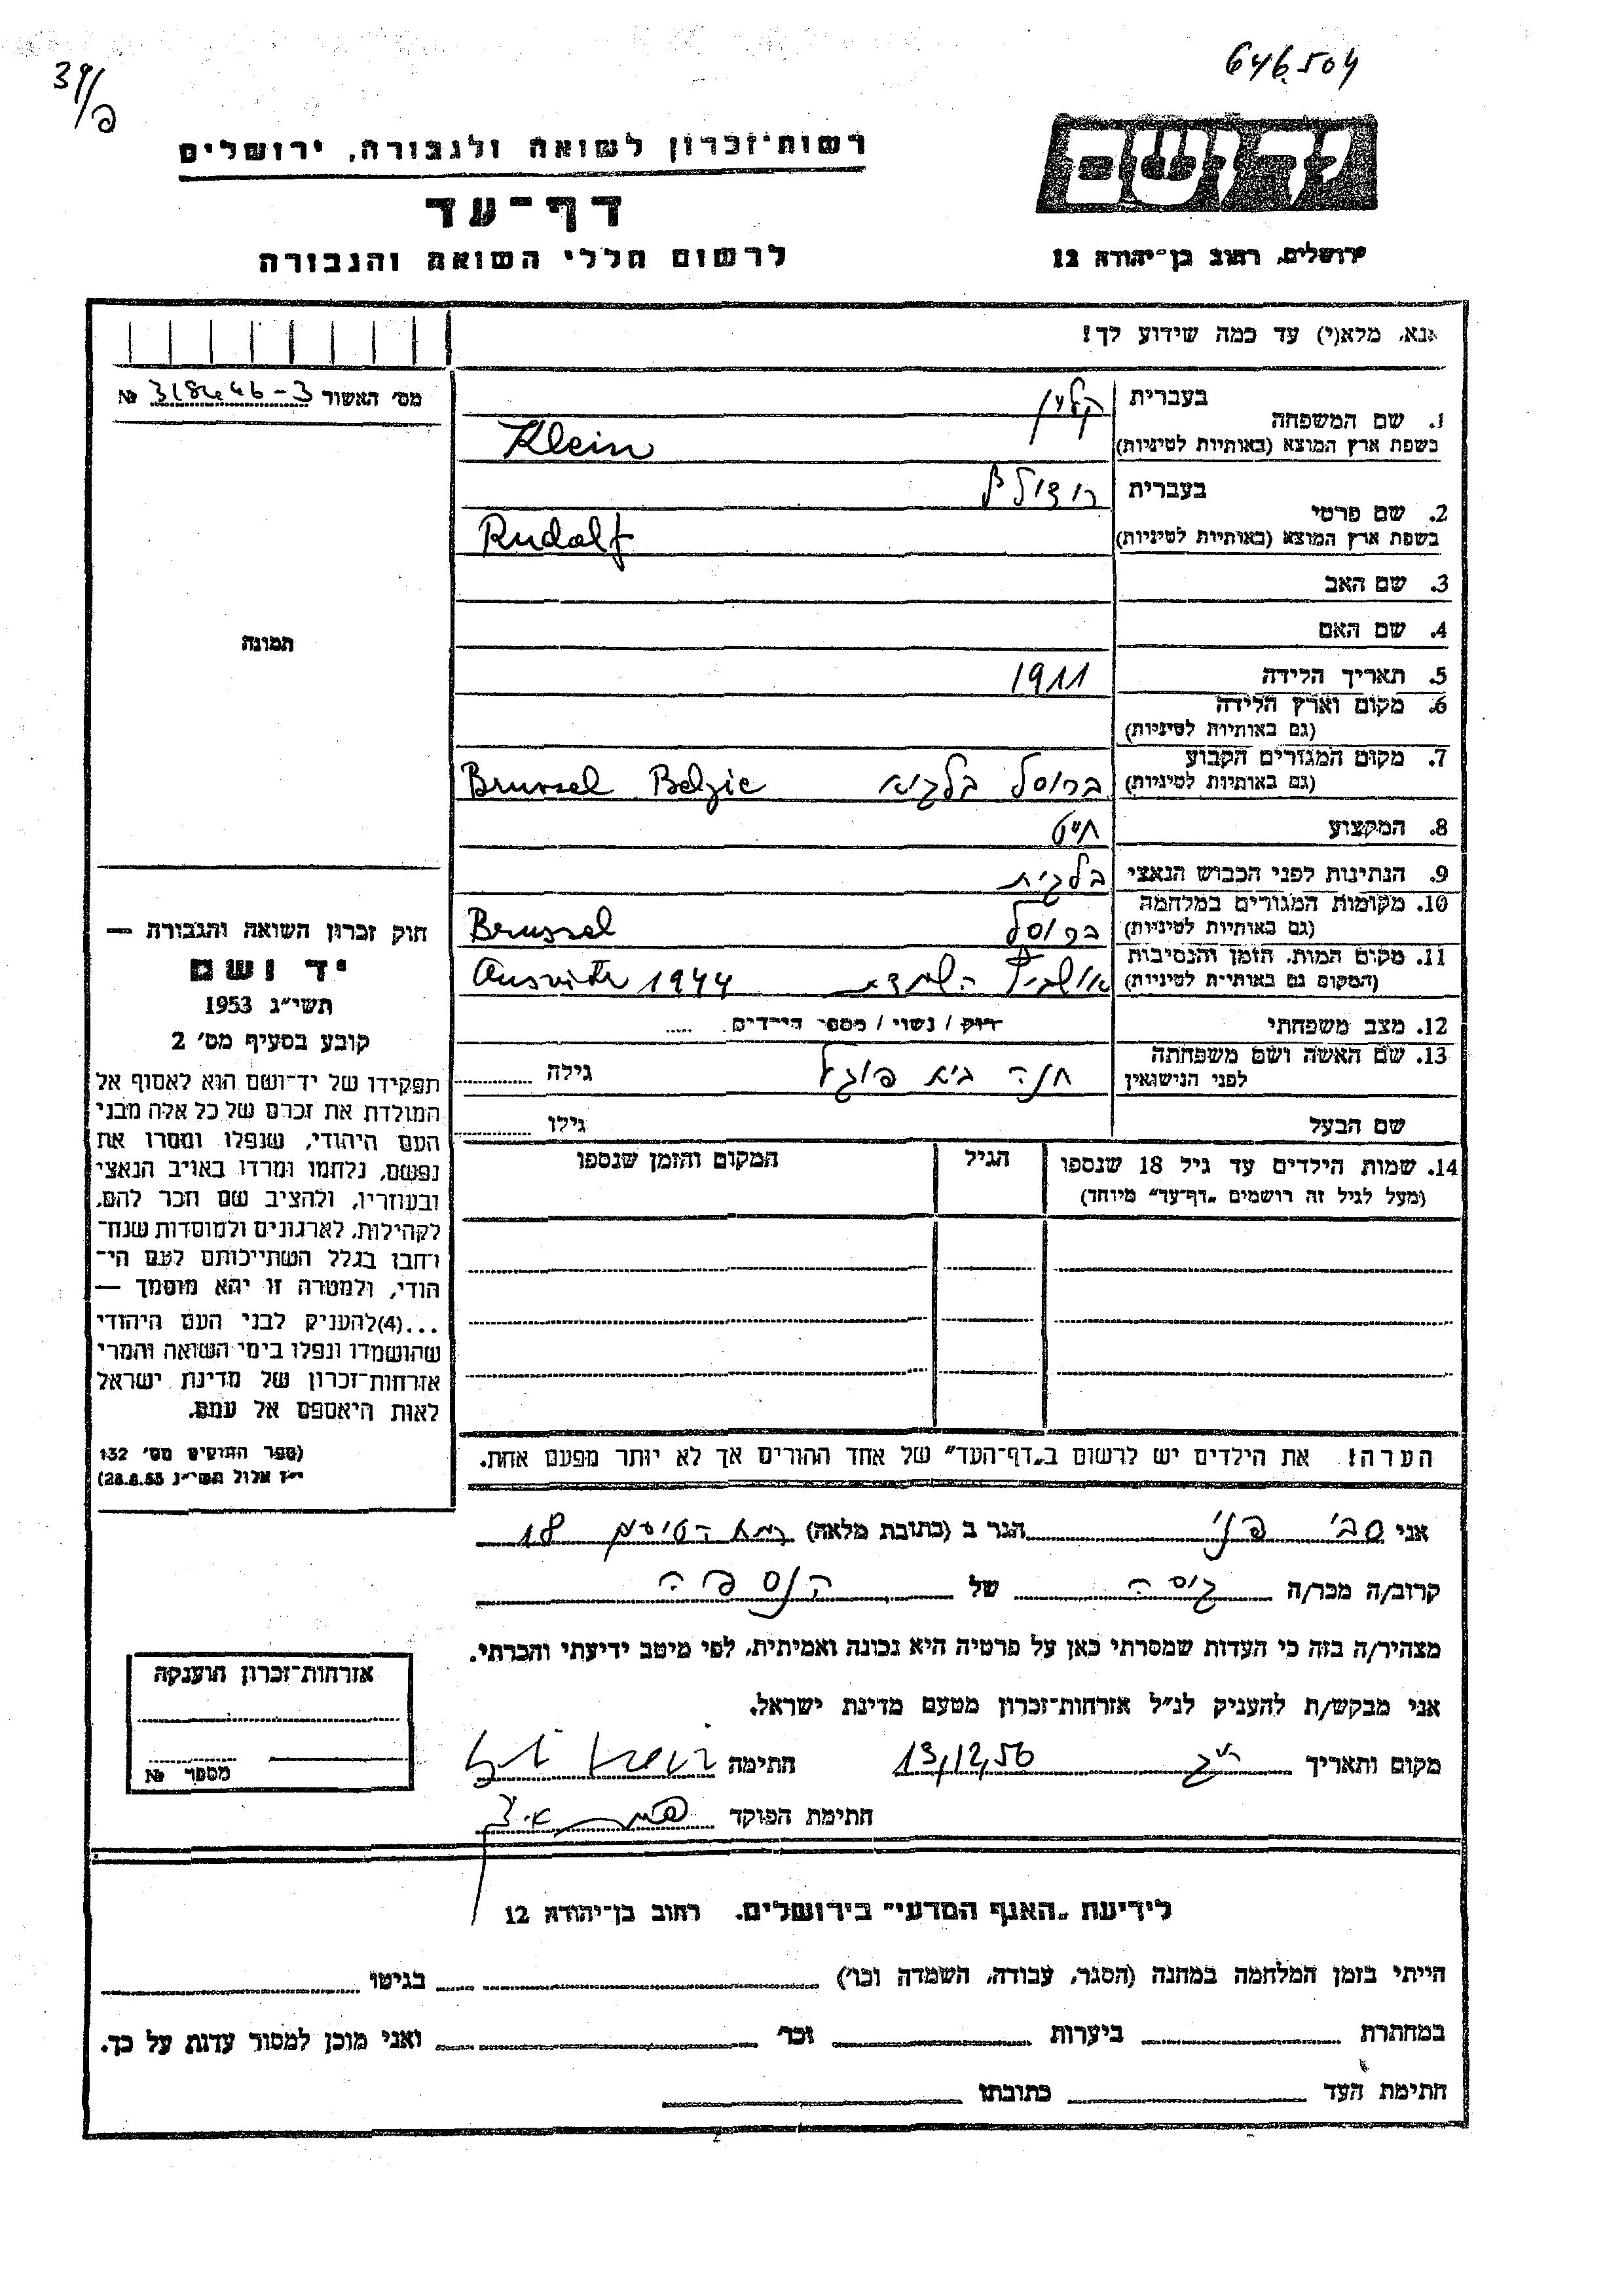 646504
39/פ
רשות־זכרון לשואה ולגבורה, ירושלים
דף־עד
לרשום חללי השואה והגבורה
יד ושם
ירושלים, רחוב בן־יהודה 12
אנא, מלא(י) עד כמה שידוע לך!
מס׳ האשור №
בעברית קליין
1. שם המשפחה
בשפת ארץ המוצא (באותיות לטיניות) Klein
בעברית רודולף
2. שם פרטי
בשפת ארץ המוצא (באותיות לטיניות) Rudolf
3. שם האב
4. שם האם
5. תאריך הלידה 1911
6. מקום וארץ הלידה
(גם באותיות לטיניות)
7. מקום המגורים הקבוע
(גם באותיות לטיניות) ברוסל בלגיא Brussel Belgie
8. המקצוע חיט
9. הנתינות לפני הכבוש הנאצי בלגית
10. מקומות המגורים במלחמה
(גם באותיות לטיניות) ברוסל Brussel
11. מקום המות, הזמן והנסיבות
(המקום גם באותיות לטיניות) אושביץ השמדה 1944
12. מצב משפחתי רוק / נשוי / מספר הילדים
13. שם האשה ושם משפחתה
לפני הנישואין חנה פוגל גילה
שם הבעל גילו
14. שמות הילדים עד גיל 18 שנספו הגיל המקום והזמן שנספו
(מעל לגיל זה רושמים „דף־עד״ מיוחד)
הערה! את הילדים יש לרשום ב„דף־העד״ של אחד ההורים אך לא יותר מפעם אחת.
תמונה
חוק זכרון השואה והגבורה —
יד ושם
תשי״ג 1953
קובע בסעיף מס׳ 2
תפקידו של יד־ושם הוא לאסוף אל
המולדת את זכרם של כל אלה מבני
העם היהודי, שנפלו ומסרו את
נפשם, נלחמו ומרדו באויב הנאצי
ובעוזריו, ולהציב שם וזכר להם,
לקהילות, לארגונים ולמוסדות שנח־
רחבו בגלל השתייכותם לעם הי־
הודי, ולמטרה זו יהא מוסמך —
...(4)להעניק לבני העם היהודי
שהושמדו ונפלו בימי השואה והמרי
אזרחות־זכרון של מדינת ישראל
לאות היאספם אל עמם.
(ספר החוקים מס׳ 132
י״ז אלול תשי״ג 28.8.53)
אני הגר ב (כתובת מלאה) 18
קרוב/ה מכר/ה גיסה של הנספה
מצהיר/ה בזה כי העדות שמסרתי כאן על פרטיה היא נכונה ואמיתית, לפי מיטב ידיעתי והכרתי.
אני מבקש/ת להעניק לנ״ל אזרחות־זכרון מטעם מדינת ישראל.
מקום ותאריך 13,12,56 חתימה
חתימת הפוקד
אזרחות־זכרון הוענקה
מספר №
לידיעת „האגף המדעי״ בירושלים, רחוב בן־יהודה 12
הייתי בזמן המלחמה במחנה (הסגר, עבודה, השמדה וכו׳) בגיטו
במחתרת ביערות וכו׳ ואני מוכן למסור עדות על כך.
חתימת העד כתובתו